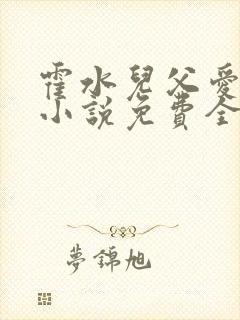 霍水兒父愛
小說免費全
夢錦旭